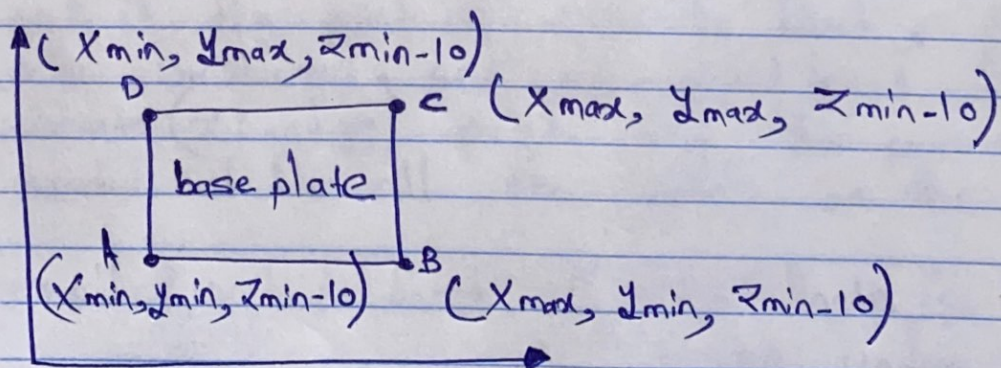 (Xmin, Ymax, Zmin-10)
D
C (Xmax, Ymax, Zmin-10)
base plate
A
B
(Xmin, Ymin, Zmin-10) (Xmax, Ymin, Zmin-10)